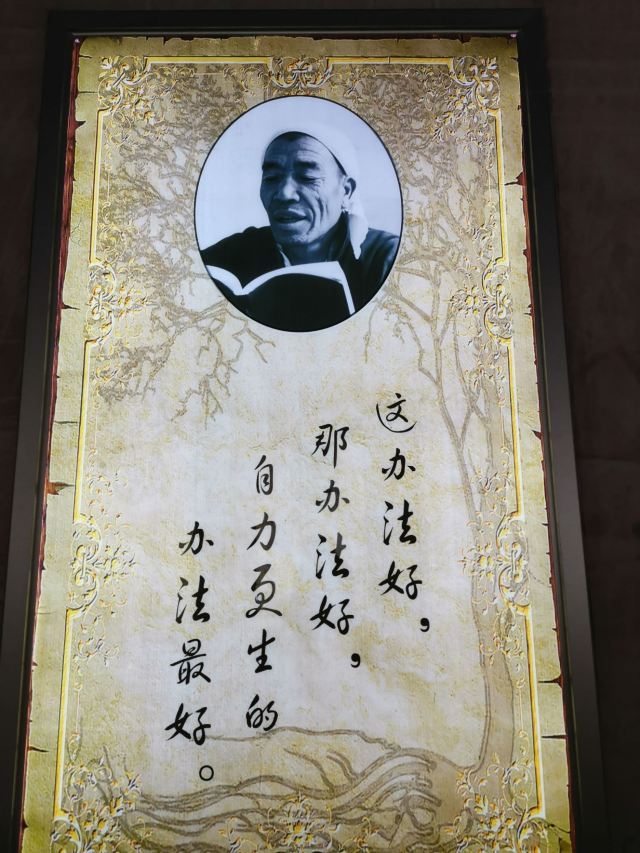 这办法好，
那办法好，
自力更生的
办法最好。